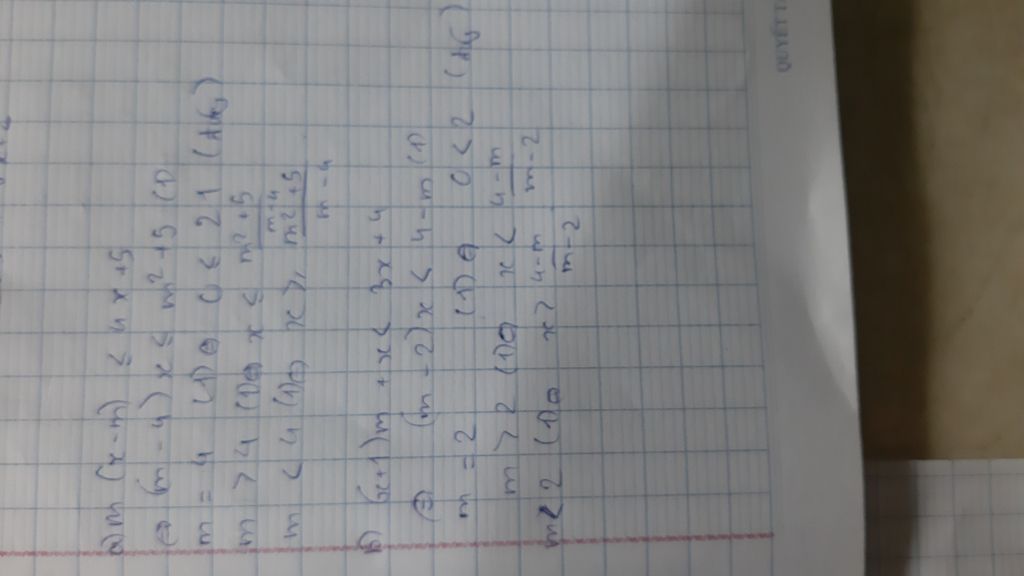 a) m (x-m) ≤ 4x+5
⇔ (m-4)x ≤ m²+5 (1)
m = 4 (1) ⇔ 0 ≤ 21
m > 4 (1) ⇔ x ≤ m²+5 / m-4
m < 4 (1) ⇔ x ≥ m²+5 / m-4
b) (x+1)m + x < 3x+4
⇔ (m-2)x < 4-m (1)
m = 2 (1) ⇔ 0 < 2
m > 2 (1) ⇔ x < 4-m / m-2
m < 2 (1) ⇔ x > 4-m / m-2